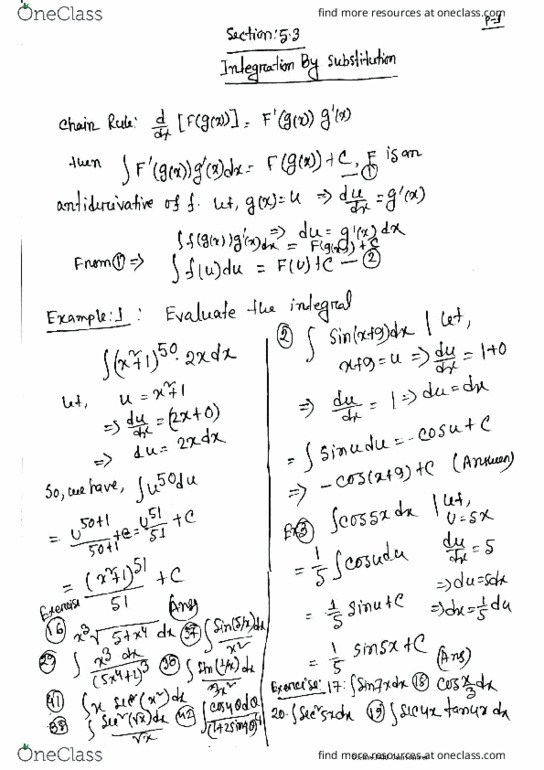 OneClass
find more resources at oneclass.com
P-1
Section: 5.3
Integration By Substitution
Chain Rule: d/dx [F(g(x))] = F'(g(x)) g'(x)
then ∫F'(g(x))g'(x)dx = F(g(x)) + C, F is an —①
antiderivative of f. Let, g(x) = u ⇒ du/dx = g'(x)
⇒ du = g'(x) dx
∫f(g(x))g'(x)dx = F(g(x)) + C
From ① ⇒ ∫f(u)du = F(u) + C —②
Example: 1: Evaluate the integral
∫(x²+1)^50 · 2x dx
Let, u = x²+1
⇒ du/dx = (2x+0)
⇒ du = 2x dx
So, we have, ∫u^50 du
= u^(50+1)/(50+1) + c = u^51/51 + C
= (x²+1)^51/51 + C
(Ans)
② ∫ Sin(x+9)dx | Let,
x+9 = u ⇒ du/dx = 1+0
⇒ du/dx = 1 ⇒ du = dx
= ∫ Sin u du = -cos u + C
⇒ -cos(x+9) + C (Answer)
Ex ③ ∫cos5x dx | Let,
U = 5x
= 1/5 ∫cos u du
du/dx = 5
⇒ du = 5dx
= 1/5 sin u + C ⇒ dx = 1/5 du
= 1/5 sin5x + C
(Ans)
Exercise
⑯ x³√(5+x⁴) dx ㊲ ∫ Sin(5/x)dx / x²
㉙ ∫ x³ dx / (5x⁴+2)³ ∫ Sin(1/x) dx / 3x²
㊶ ∫ x sec²(x²) dx
㊳ ∫ Sec²(√x) dx / √x ㊷ ∫ cos4θ dθ
Exercise: 17: ∫Sin7x dx ⑱ cos x/3 dx
20. ∫Sec²5x dx ⑲ ∫Sec4x tan4x dx
OneClass
find more resources at oneclass.com